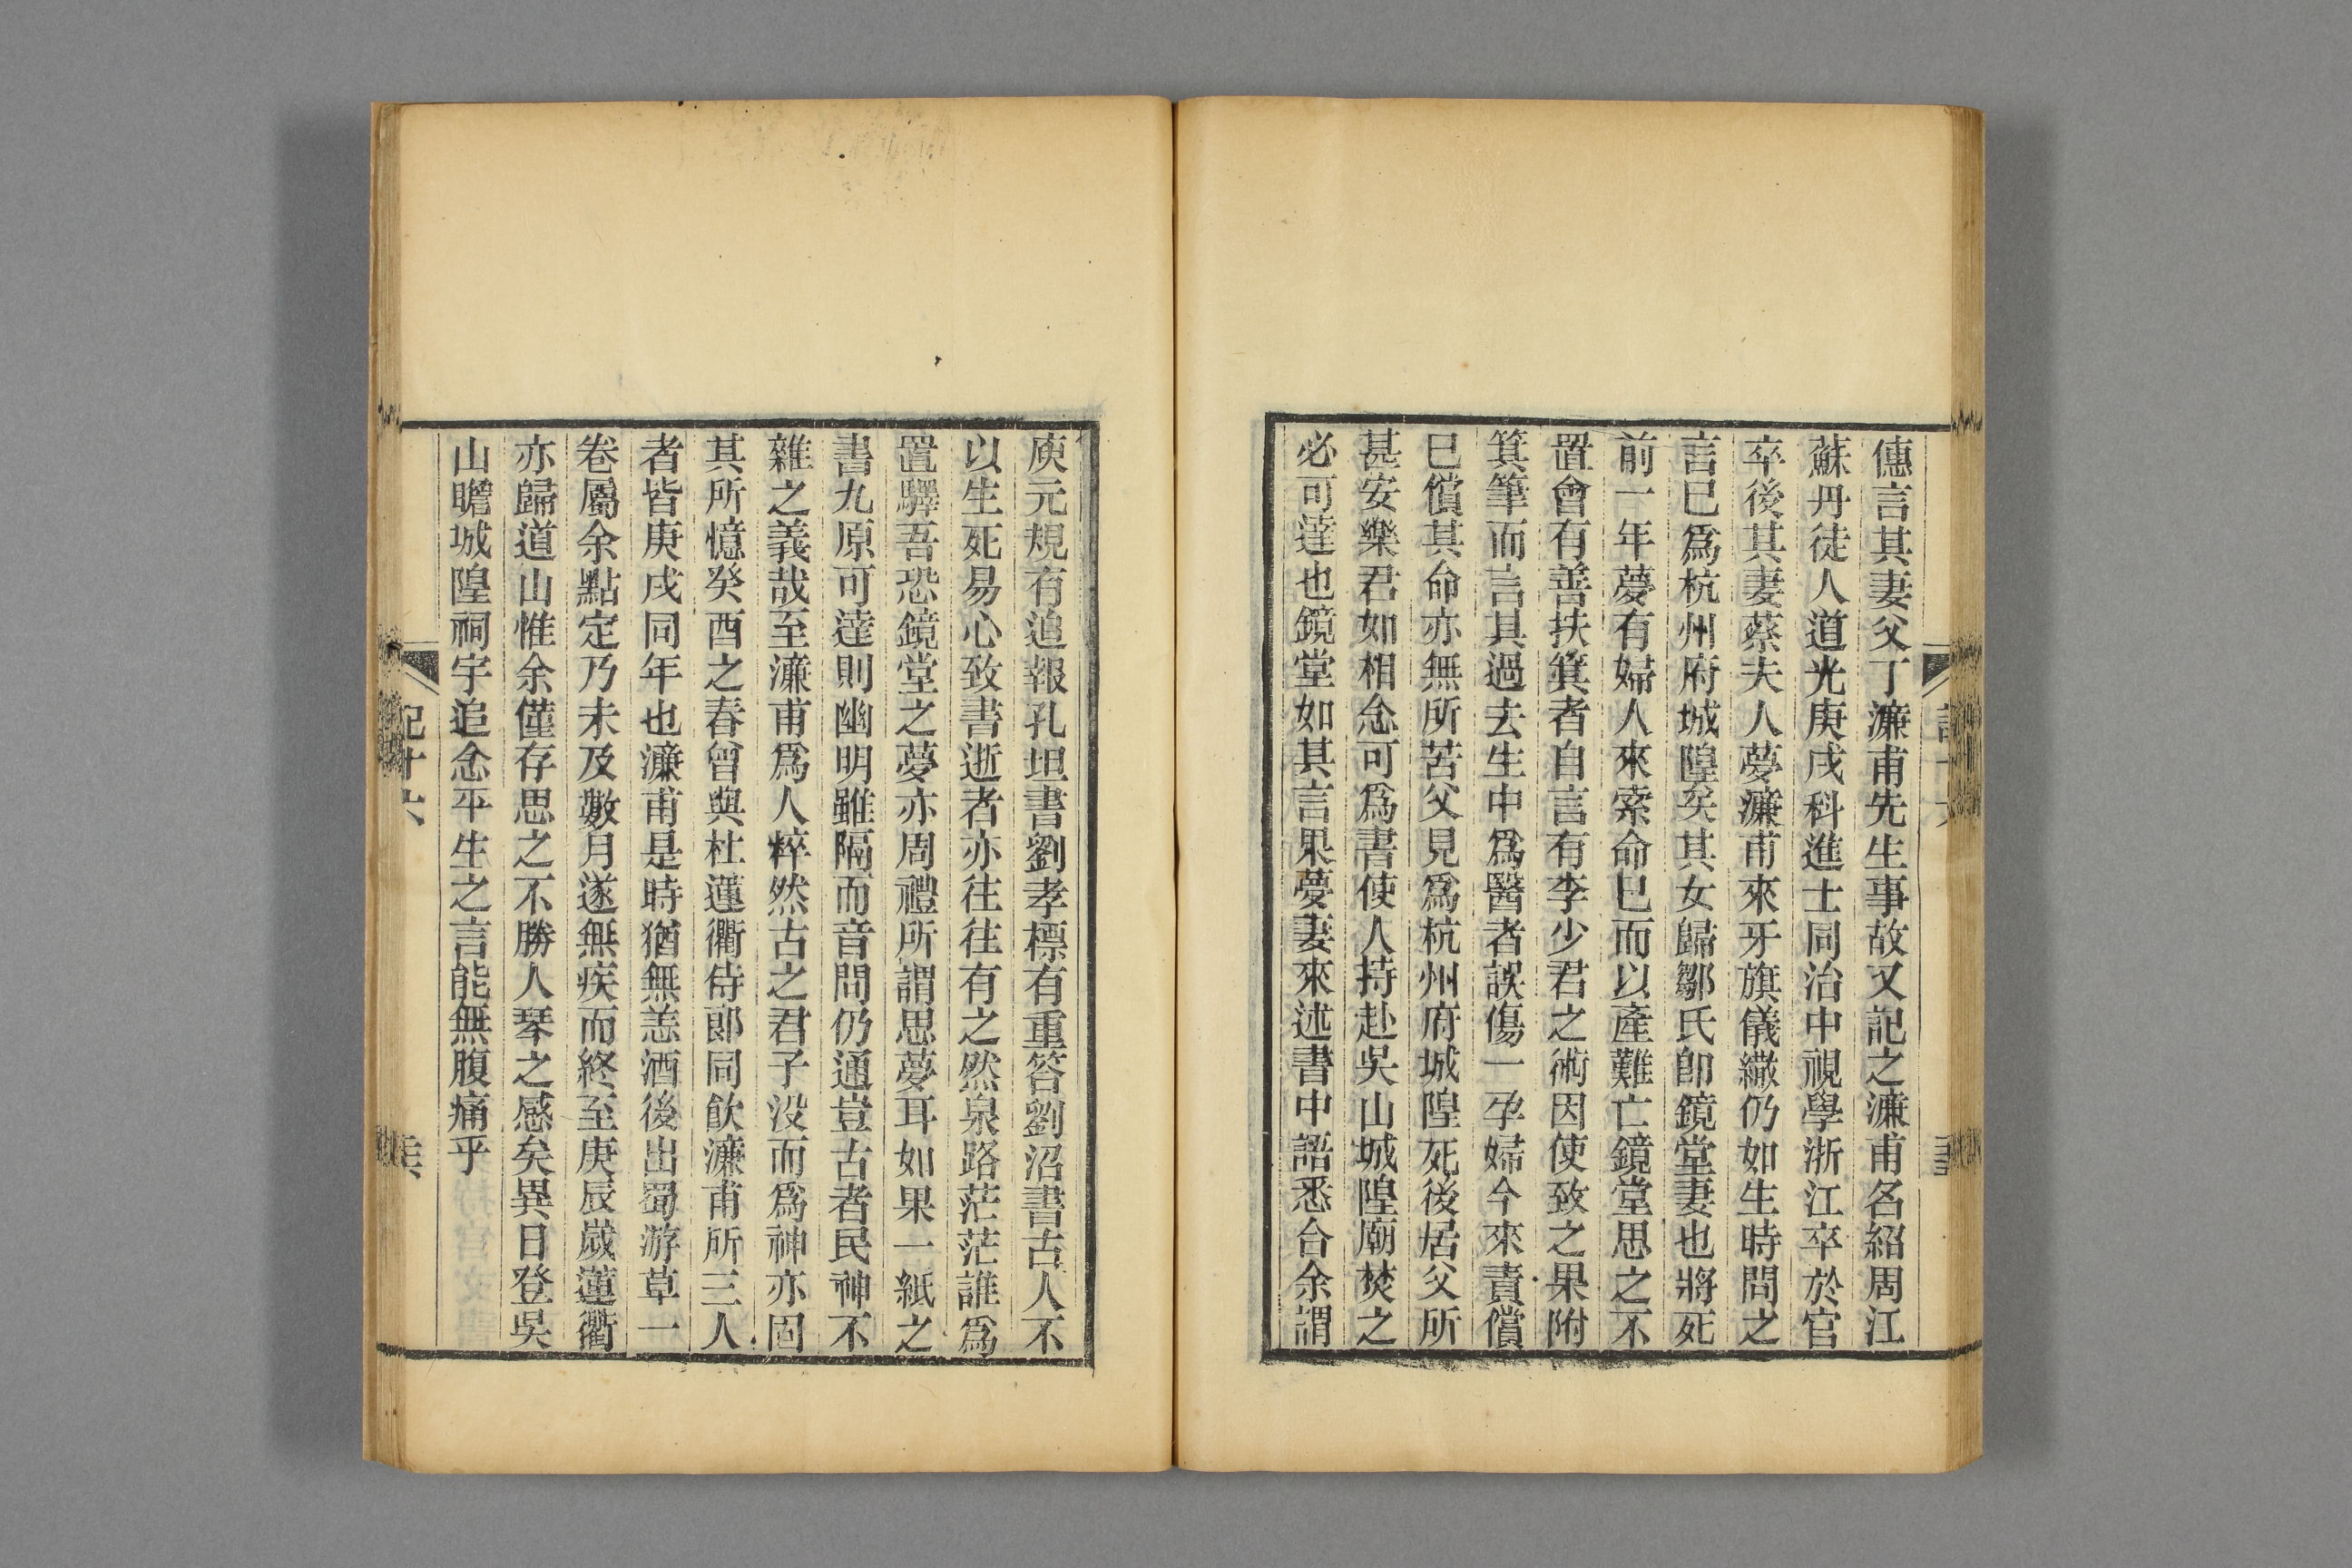 僡言其妻父丁濂甫先生事故又記之濂甫名紹周江
蘇丹徒人道光庚戌科進士同治中視學浙江卒於官
卒後其妻蔡夫人夢濂甫來牙旗儀繖仍如生時問之
言已爲杭州府城隍矣其女歸鄒氏卽鏡堂妻也將死
前一年夢有婦人來索命已而以產難亡鏡堂思之不
置會有善扶箕者自言有李少君之術因使致之果附
箕筆而言其過去生中爲醫者誤傷一孕婦今來責償
已償其命亦無所苦父見爲杭州府城隍死後居父所
甚安樂君如相念可爲書使人持赴吳山城隍廟焚之
必可達也鏡堂如其言果夢妻來述書中語悉合余謂
庾元規有追報孔坦書劉孝標有重答劉沼書古人不
以生死易心致書逝者亦往往有之然泉路茫茫誰爲
置驛吾恐鏡堂之夢亦周禮所謂思夢耳如果一紙之
書九原可達則幽明雖隔而音問仍通豈古者民神不
雜之義哉至濂甫爲人粹然古之君子没而爲神亦固
其所憶癸酉之春曾與杜蓮衢侍郎同飲濂甫所三人
者皆庚戌同年也濂甫是時猶無恙酒後出蜀游草一
卷屬余點定乃未及數月遂無疾而終至庚辰嵗蓮衢
亦歸道山惟余僅存思之不勝人琴之感矣異日登吳
山瞻城隍祠宇追念平生之言能無腹痛乎
記十六